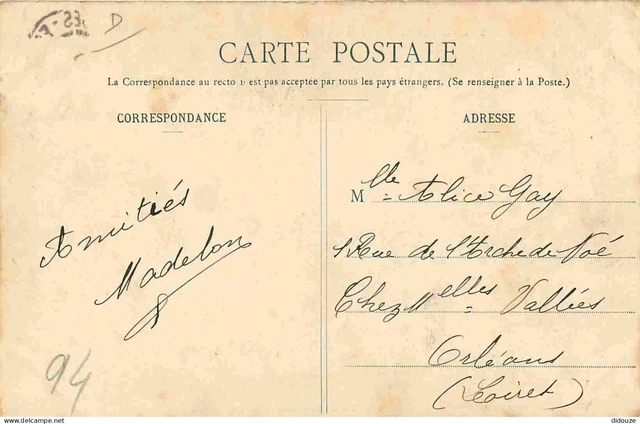 D
CARTE POSTALE
La Correspondance au recto n'est pas acceptée par tous les pays étrangers. (Se renseigner à la Poste.)
CORRESPONDANCE
Amitiés
Madelon
94
ADRESSE
Mlle Alice Gay
1 Rue de l'Arche de Noé
Chez Melles Vallies
Orléans
(Loiret)
www.delcampe.net
didouze